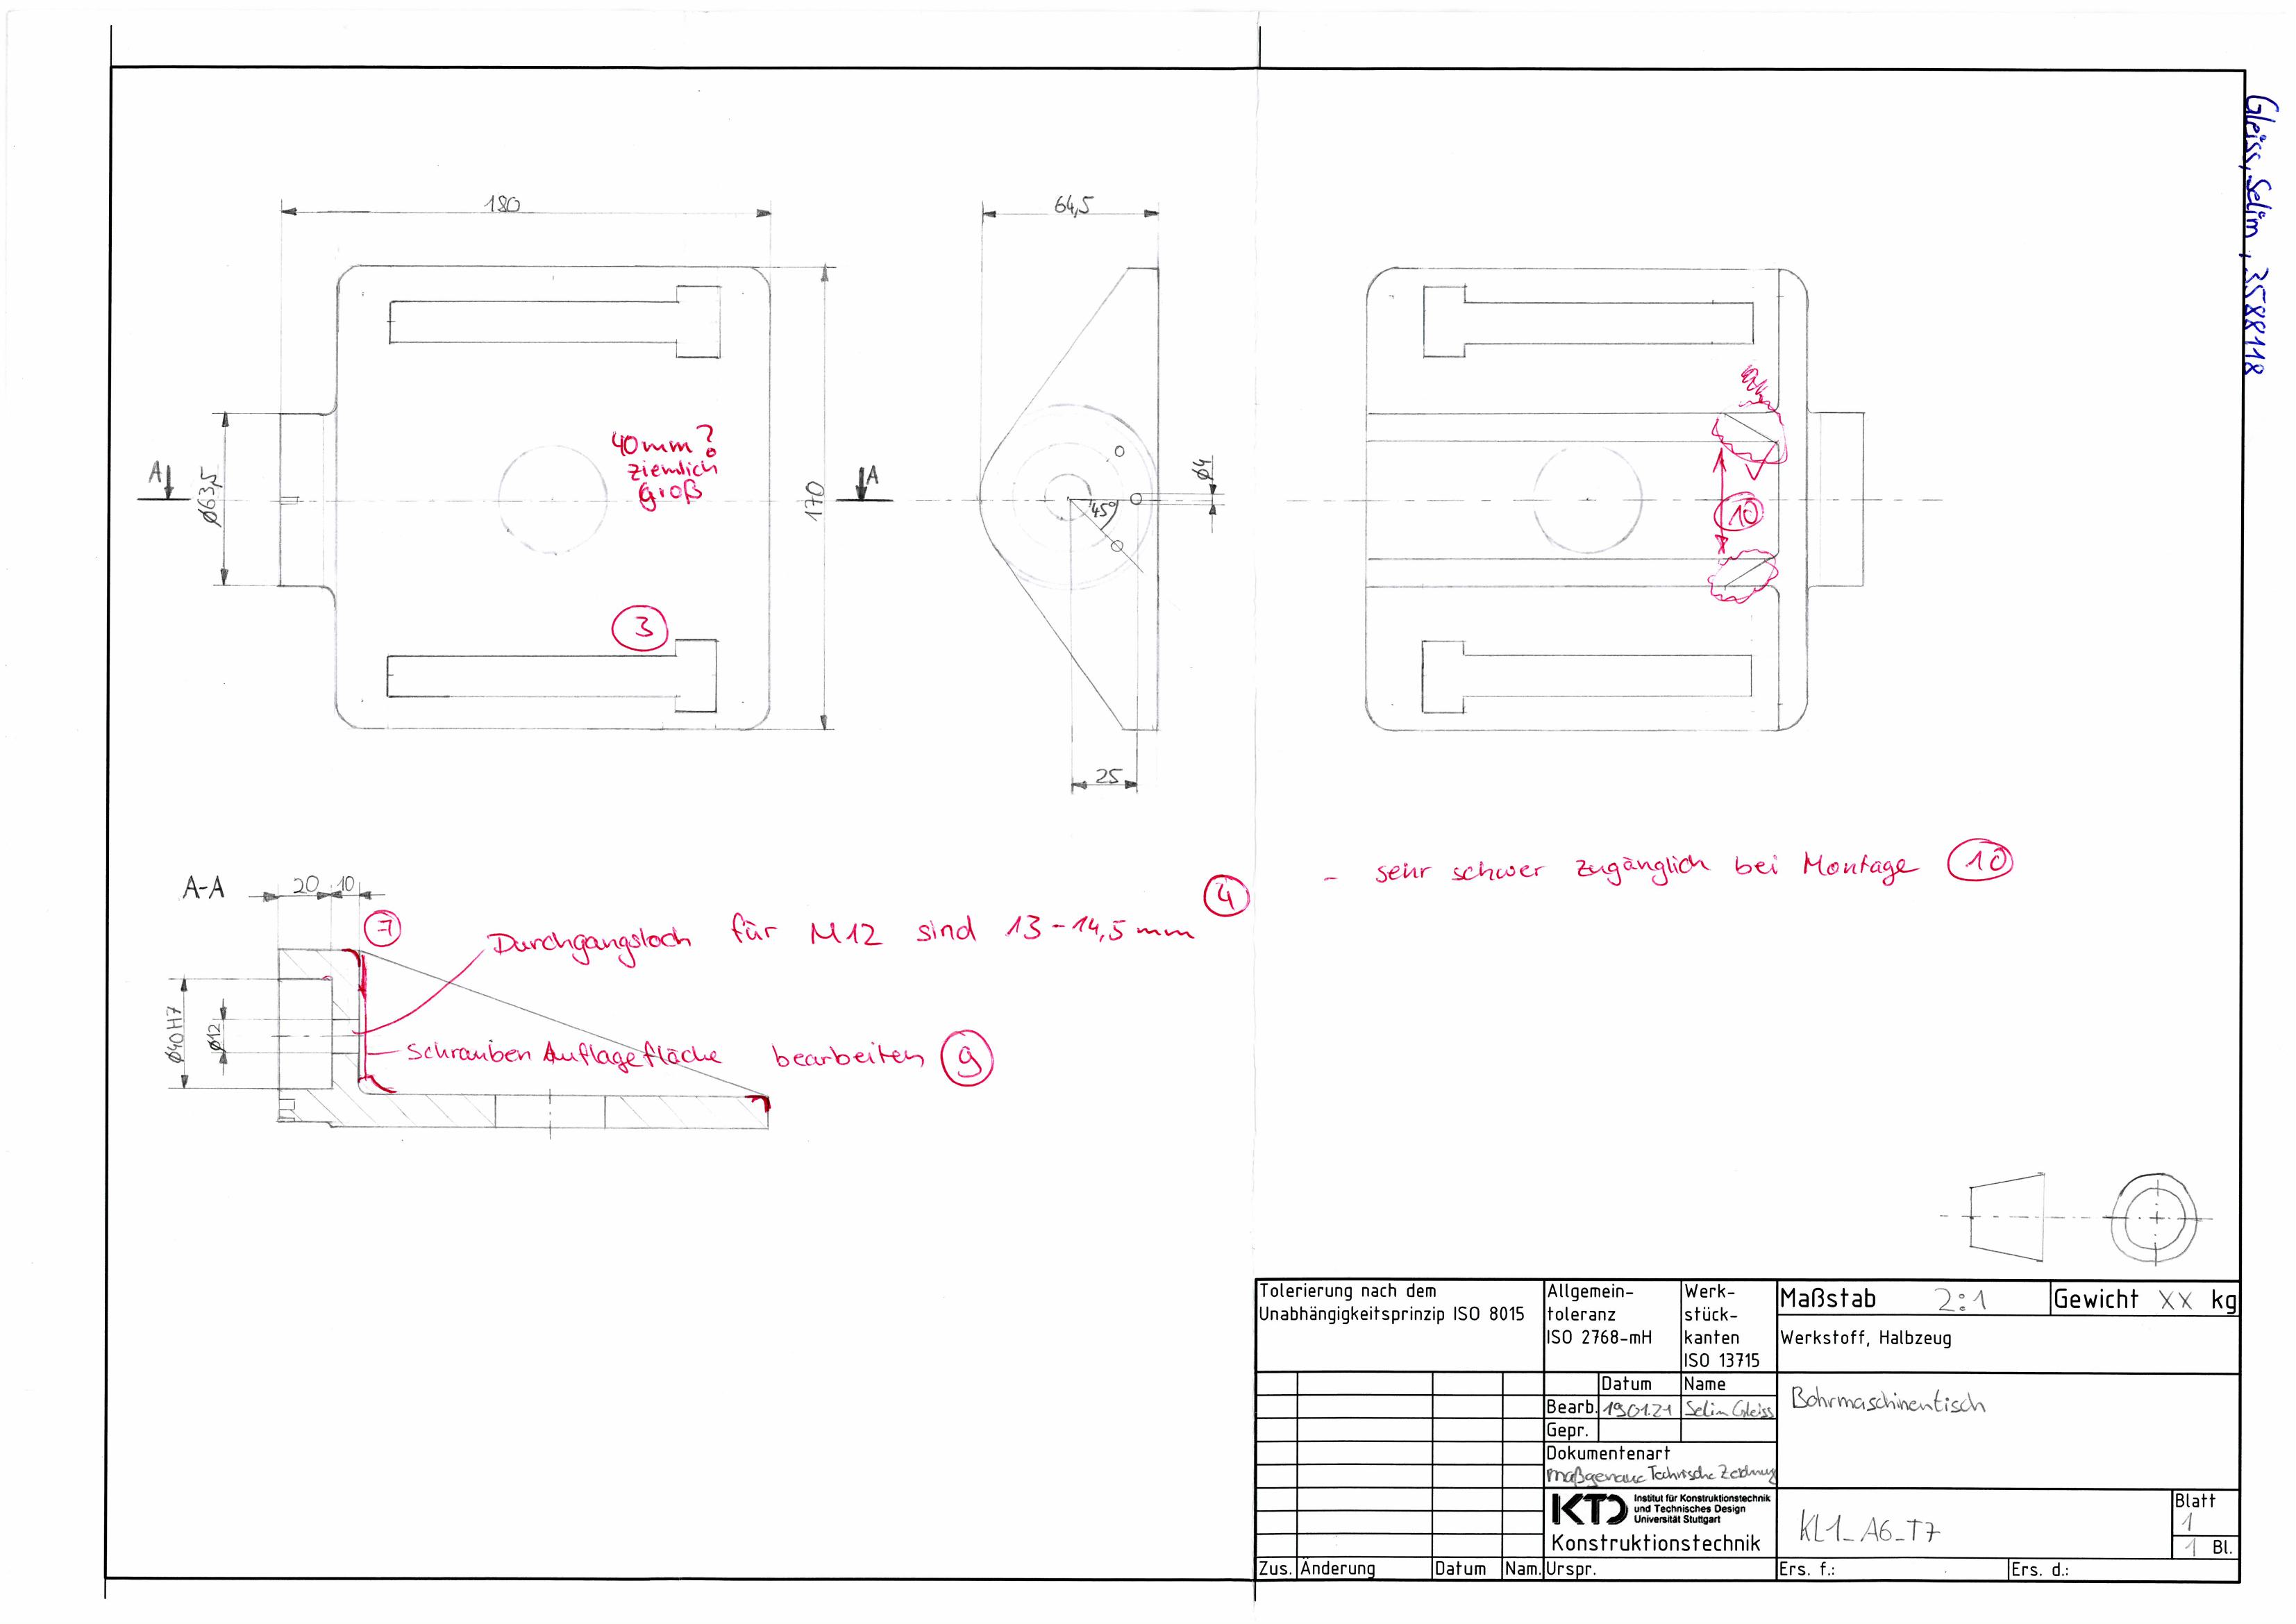 Gleiss, Selim, 3588118
180
64,5
A
A
Ø63,5
170
Ø4
45°
25
40mm?
ziemlich
groß
3
10
A-A
20
10
7
4
Durchgangsloch für M12 sind 13-14,5 mm
- sehr schwer zugänglich bei Montage 10
Ø40H7
Ø12
Schrauben Auflagefläche bearbeiten 9
Tolerierung nach dem
Unabhängigkeitsprinzip ISO 8015
Allgemein-
toleranz
ISO 2768-mH
Werk-
stück-
kanten
ISO 13715
Maßstab 2:1
Gewicht XX kg
Werkstoff, Halbzeug
Datum
Name
Bearb. 190121 Selim Gleiss
Gepr.
Dokumentenart
maßgenaue Technische Zeichnung
Bohrmaschinentisch
KTD
Institut für Konstruktionstechnik
und Technisches Design
Universität Stuttgart
Konstruktionstechnik
KL1_A6_T7
Blatt
1
1 Bl.
Zus. Änderung Datum Nam. Urspr. Ers. f.: Ers. d.: